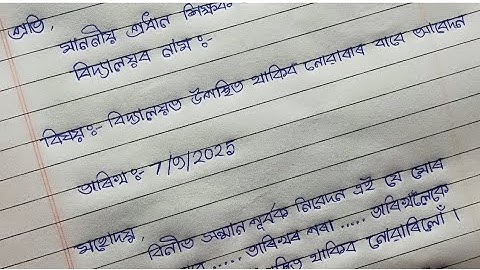 প্ৰতি,
মাননীয় প্ৰধান শিক্ষক
বিদ্যালয়ৰ নাম :-
বিষয়:- বিদ্যালয়ত উপস্থিত থাকিব নোৱাৰাৰ বাবে আবেদন
তাৰিখ :- 7/9/2025
মহোদয়,
বিনীত সন্মান পূৰ্বক নিবেদন এই যে মোৰ
..... তাৰিখৰ পৰা ..... তাৰিখলৈকে
থাকিব নোৱাৰিলোঁ।